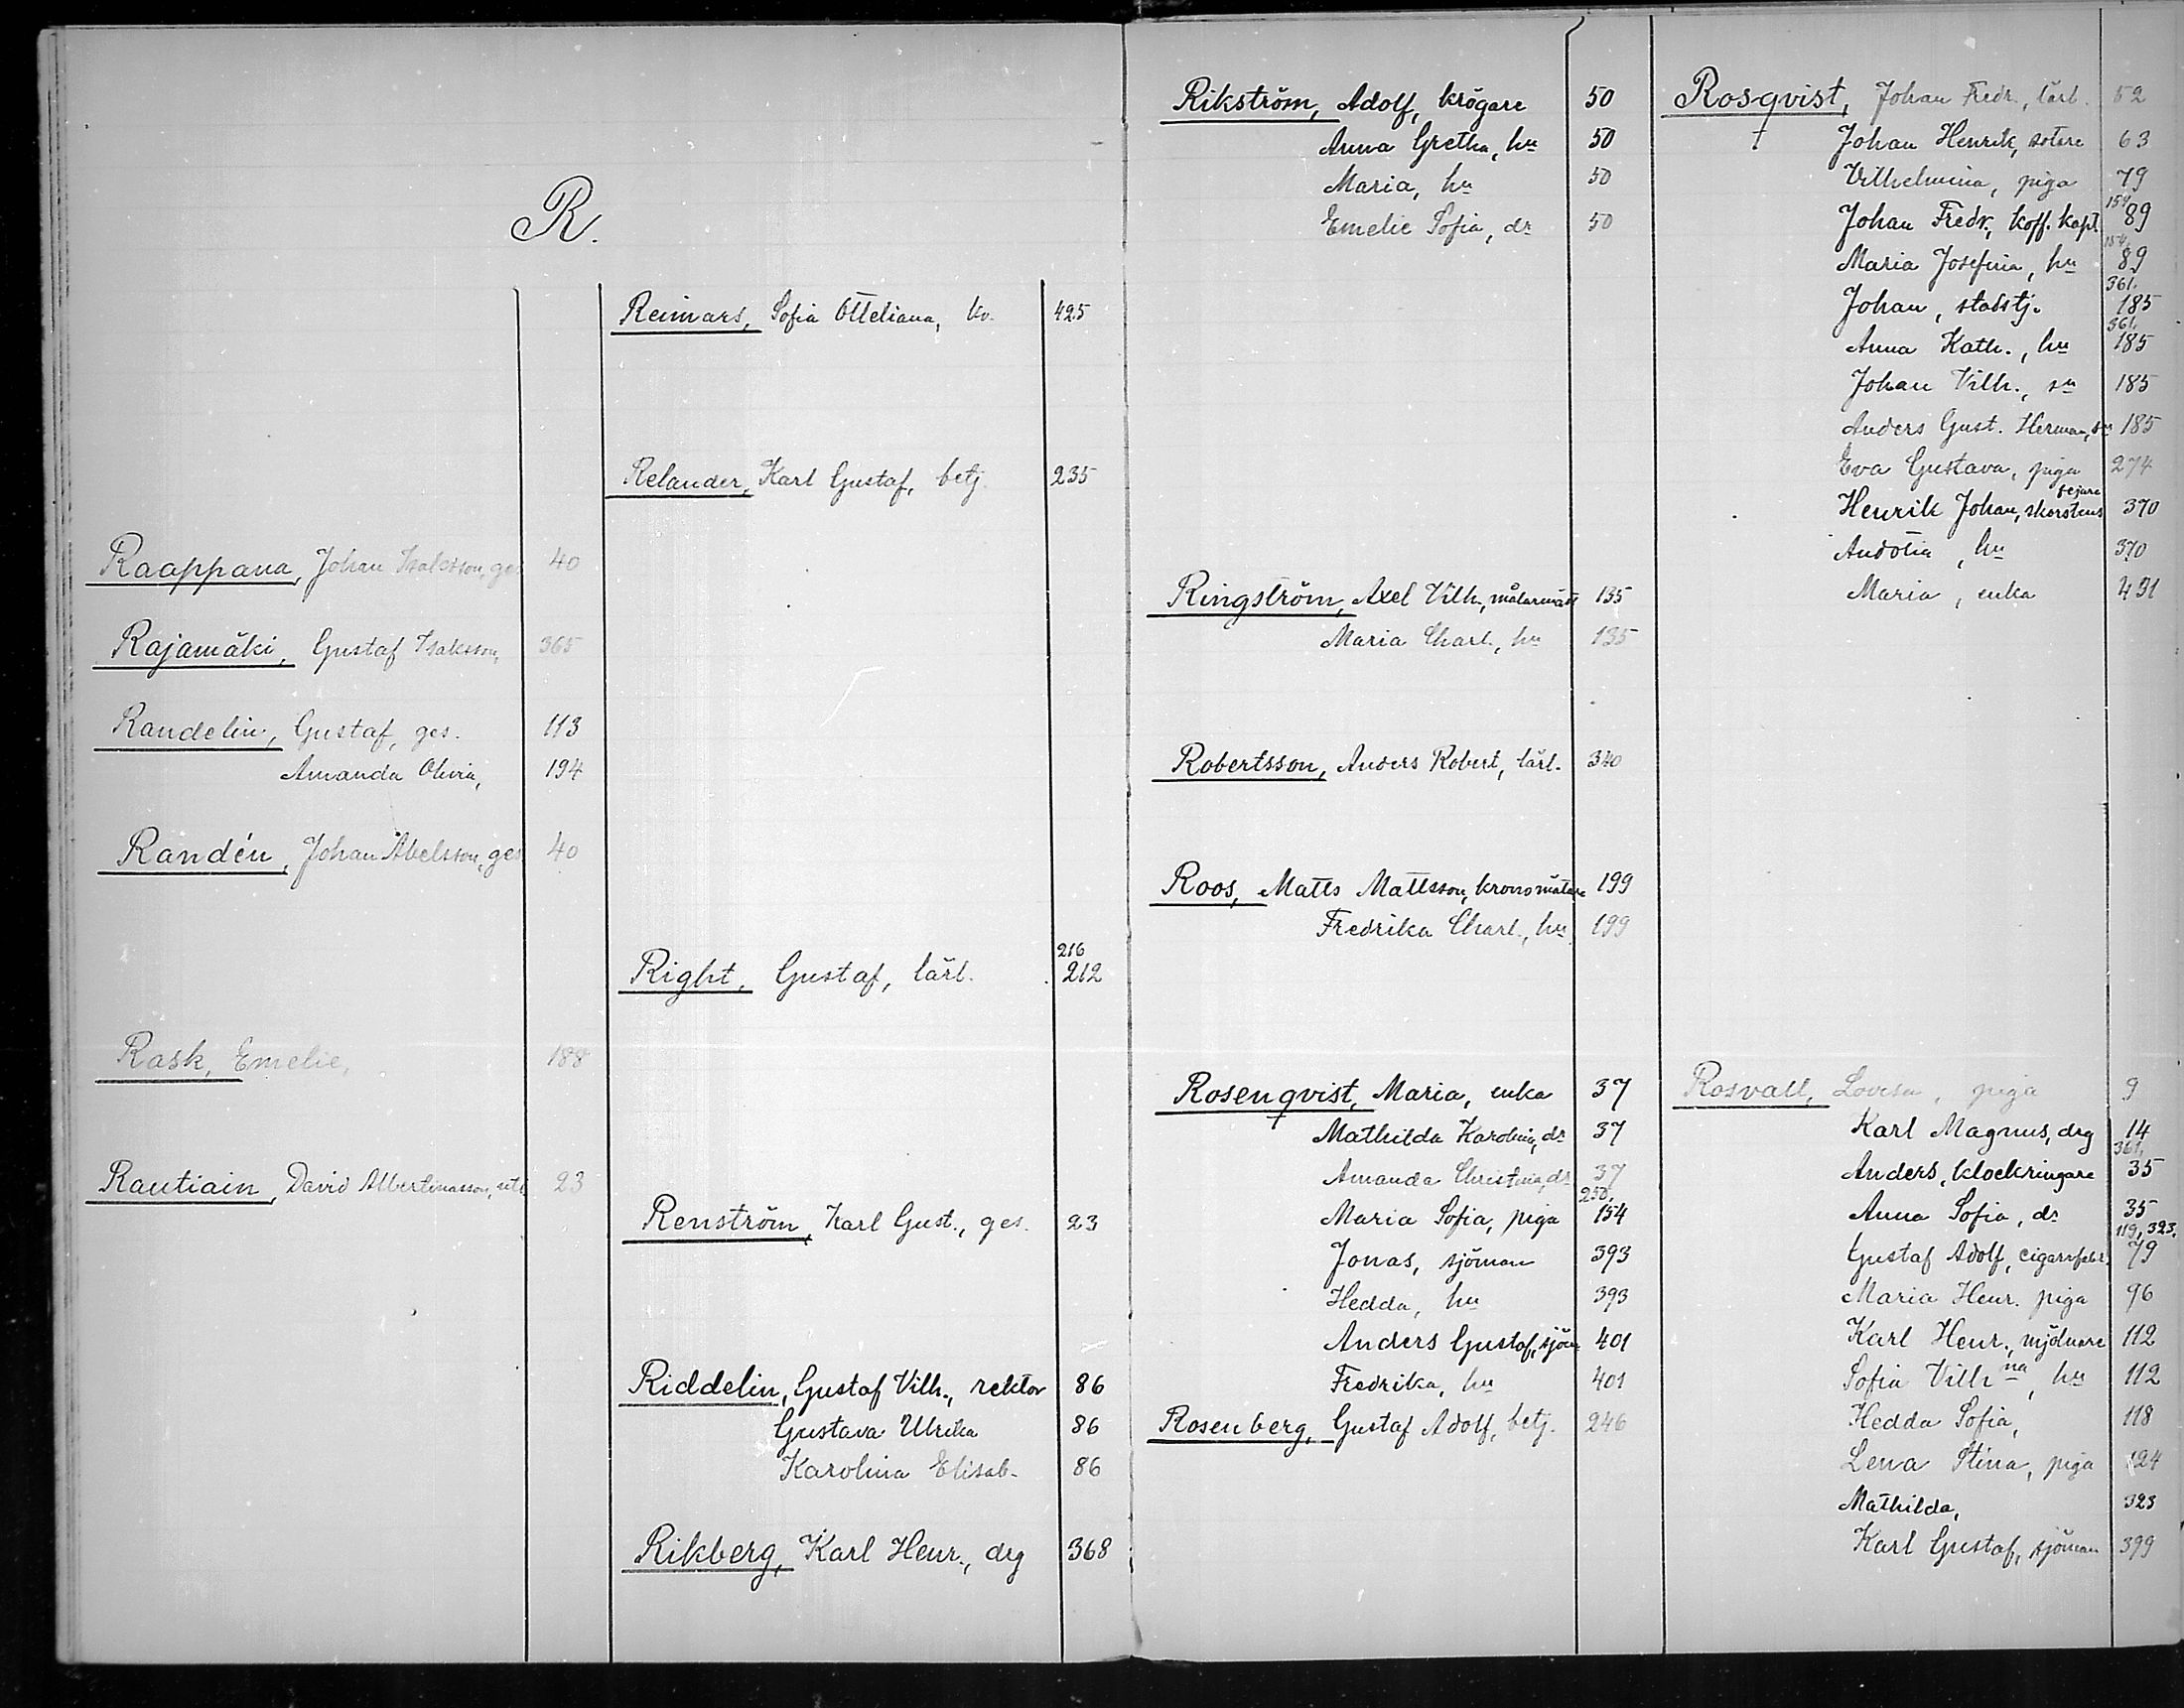 R.
Raappana, Johan Isaksson, ges. 40
Rajamäki, Gustaf Isaksson, 365
Randelin, Gustaf, ges. 113
Amanda Olivia, 194
Randén, Johan Abelsson, ges 40
Rask, Emelie, 188
Rautiain, David Albertinasson, 23
Reimars, Sofia Otteliana, kv. 425
Relander, Karl Gustaf, betj. 235
216
Right, Gustaf, lärl. 212
Renström, Karl Gust., ges. 23
Riddelin, Gustaf Vilh., rektor 86
Gustava Ulrika 86
Karolina Elisab. 86
Rikberg, Karl Henr., drg 368
Rikström, Adolf, krögare 50
Anna Gretha, hu 50
Maria, hu 50
Emelie Sofia, dr 50
Ringström, Axel Vilh., målarmäst 135
Maria Charl., hu 135
Robertsson, Anders Robert, lärl. 340
Roos, Matts Mattsson, kronomätare 199
Fredrika Charl., hu 199
Rosenqvist, Maria, enka 37
Mathilda Karolina, dr 37
Amanda Christina, dr 37
250,
Maria Sofia, piga 154
Jonas, sjöman 393
Hedda, hu 393
Anders Gustaf, sjöm 401
Fredrika, hu 401
Rosenberg, Gustaf Adolf, betj. 246
Rosqvist, Johan Fredr., lärl. 52
Johan Henrik, sotare 63
Vilhelmina, piga 79
154,
Johan Fredr., koff. kapt. 89
154,
Maria Josefina, hu 89
361.
Johan, stabstj. 185
361,
Anna Kath., hu 185
Johan Vilh., sn 185
Anders Gust. Herman, sn 185
Eva Gustava, piga 274
fejare
Henrik Johan, skorstens 370
Audotia, hu 370
Maria, enka 431
Rosvall, Lovisa, piga 9
Karl Magnus, drg 14
361,
Anders, klockringare 35
Anna Sofia, dr 35
119, 323,
Gustaf Adolf, cigarrfabr. 79
Maria Henr. piga 96
Karl Henr., mjölnare 112
Sofia Vilhna, hu 112
Hedda Sofia, 118
Lena Stina, piga 124
Mathilda, 323
Karl Gustaf, sjöman 399